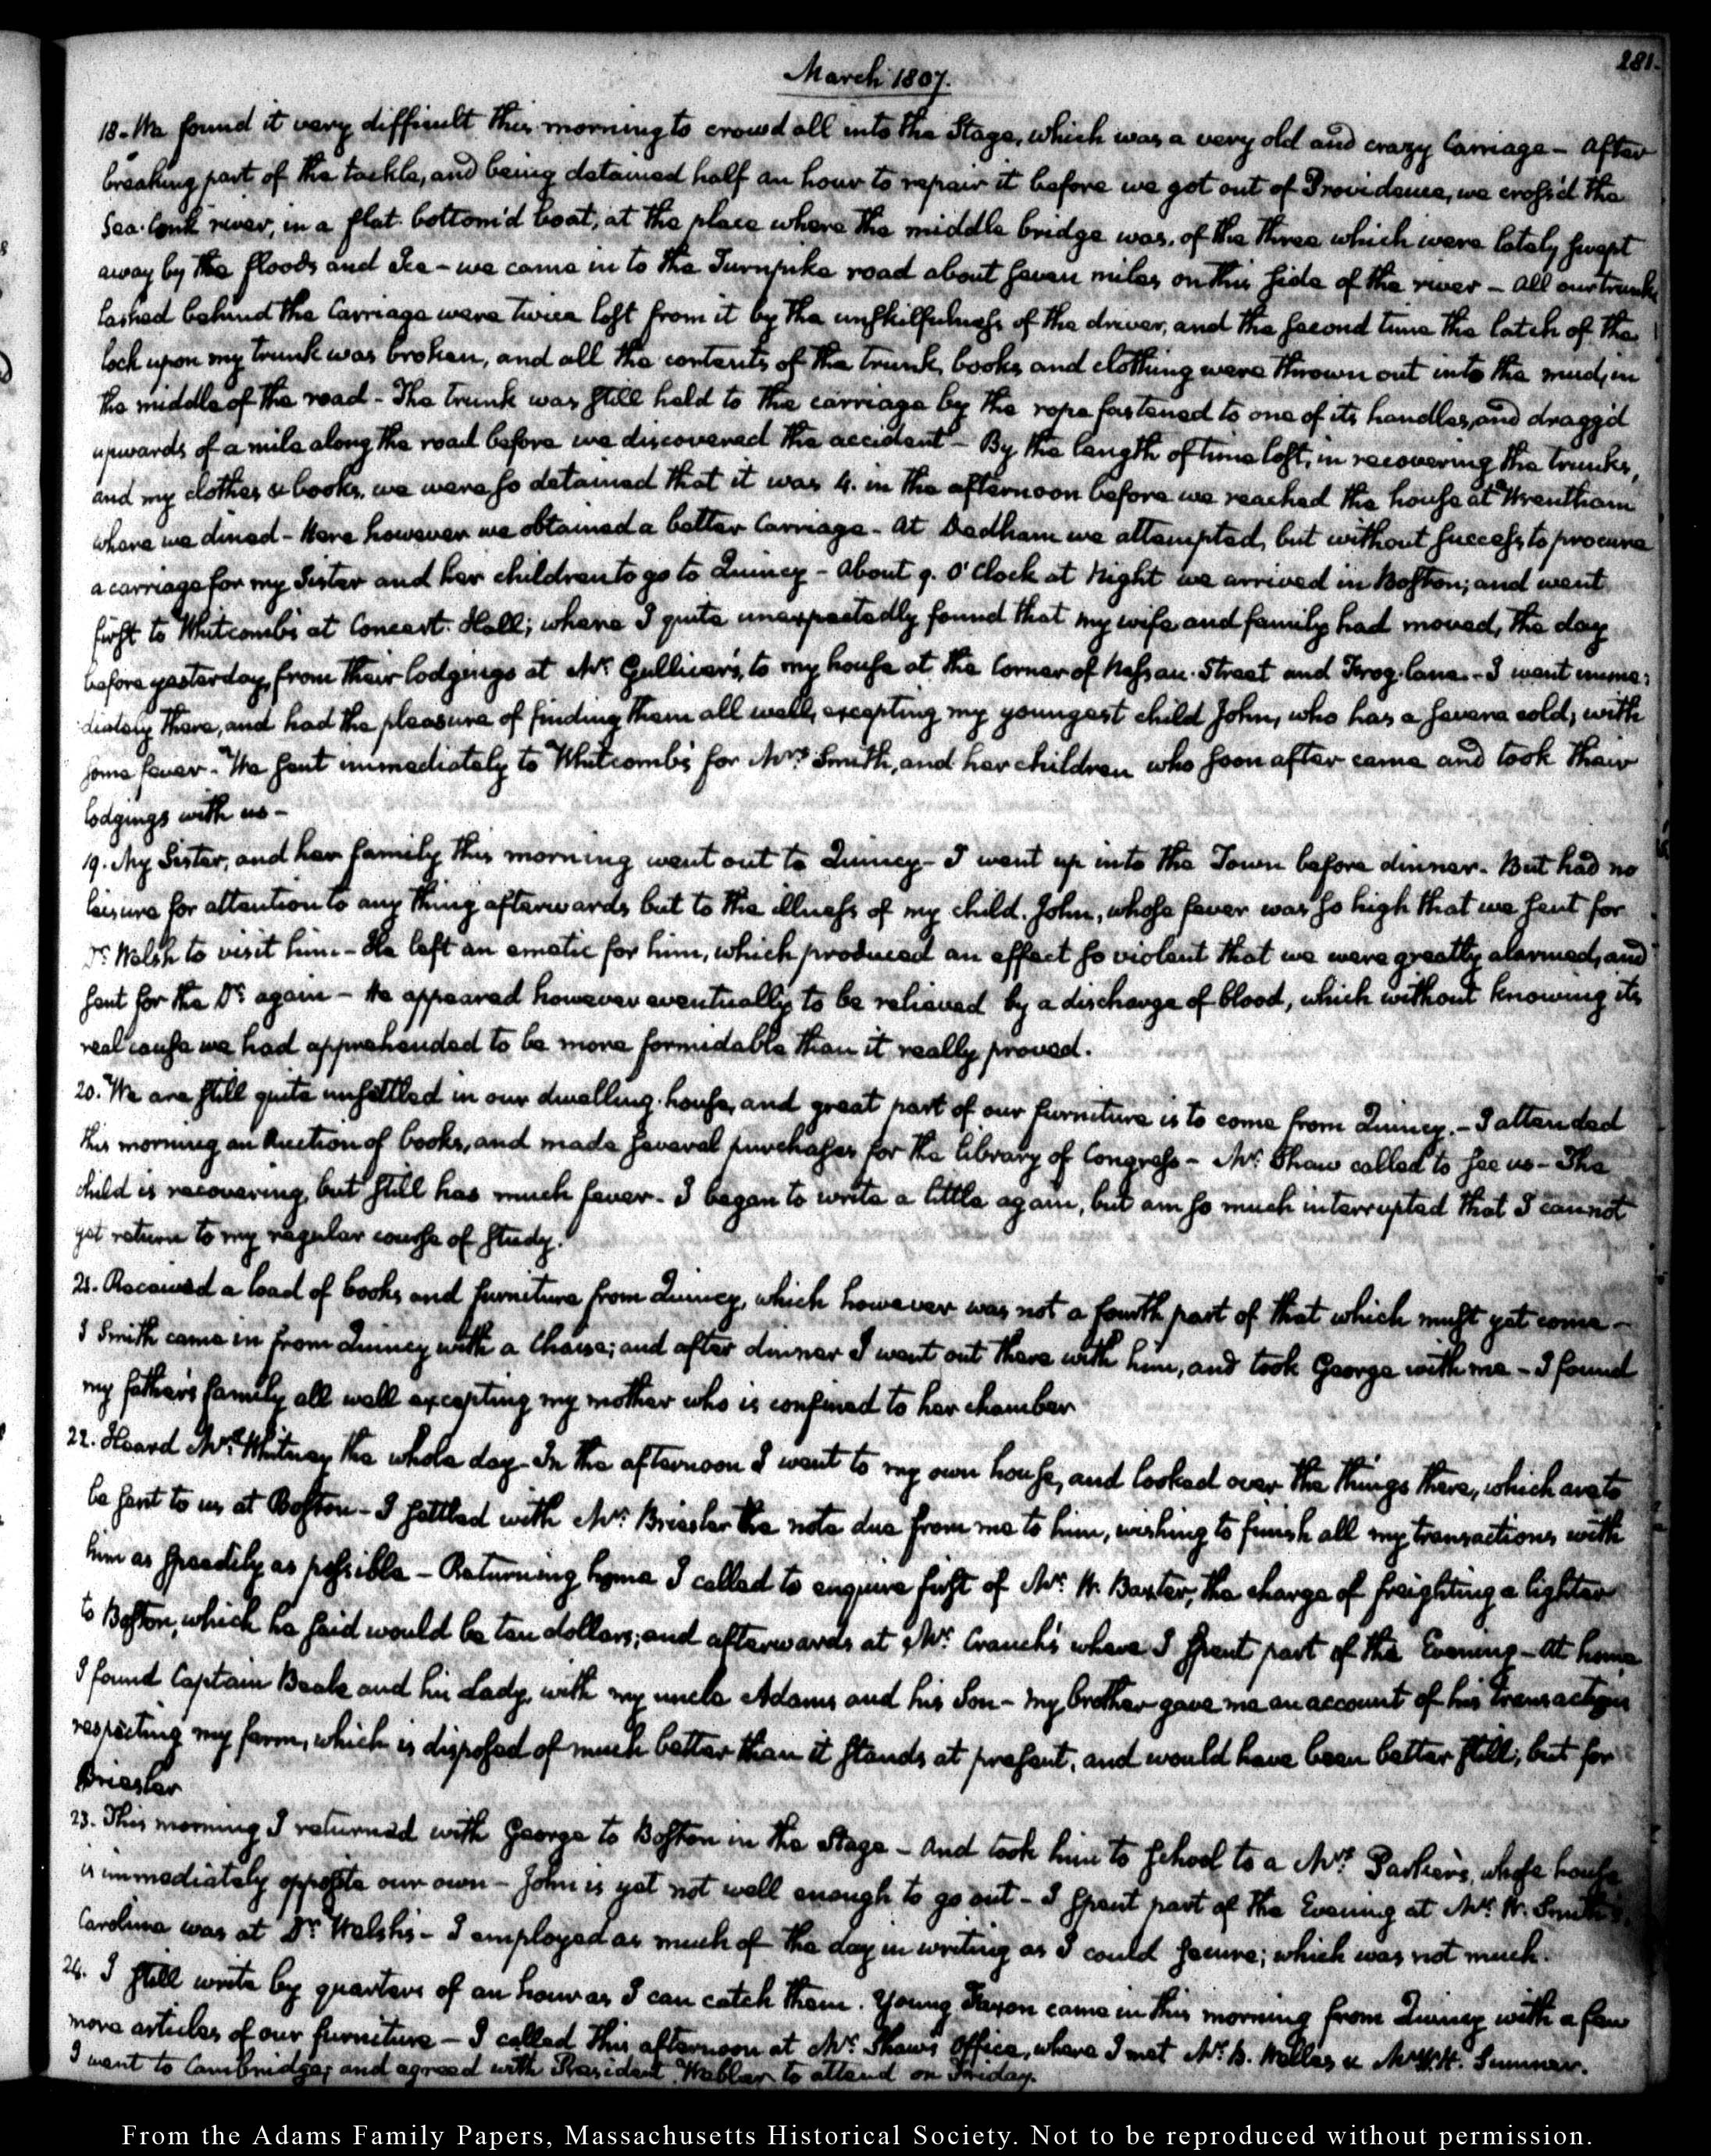 281.
March 1807.
18. We found it very difficult this morning to crowd all into the Stage, which was a very old and crazy Carriage – After
breaking part of the tackle, and being detained half an hour to repair it before we got out of Providence, we cross'd the
Sea-conk river, in a flat-bottom'd boat, at the place where the middle bridge was, of the three which were lately swept
away by the floods and Ice – we came in to the Turnpike road about seven miles on this side of the river – All our trunks
lashed behind the Carriage were twice lost from it by the unskilfulness of the driver, and the second time the latch of the
lock upon my trunk was broken, and all the contents of the trunk, books and clothing were thrown out into the mud, in
the middle of the road – The trunk was still held to the carriage by the rope fastened to one of its handles, and dragg'd
upwards of a mile along the road before we discovered the accident – By the length of time lost, in recovering the trunks,
and my clothes & books, we were so detained that it was 4. in the afternoon before we reached the house at Wrentham
where we dined – Here however we obtained a better Carriage – At Dedham we attempted, but without success to procure
a carriage for my Sister and her children to go to Quincy – About 9. O'Clock at Night we arrived in Boston; and went
first to Whitcomb's at Concert-Hall; where I quite unexpectedly found that my wife and family had moved, the day
before yesterday, from their lodgings at Mr. Gulliver's, to my house at the Corner of Nassau-Street and Frog-lane. – I went imme:
:diately there, and had the pleasure of finding them all well, excepting my youngest child John, who has a severe cold, with
some fever. We sent immediately to Whitcomb's for Mrs. Smith, and her children who soon after came and took their
lodgings with us –
19. My Sister, and her family this morning went out to Quincy – I went up into the Town before dinner. But had no
leisure for attention to any thing afterwards but to the illness of my child. John, whose fever was so high that we sent for
Dr. Welsh to visit him – He left an emetic for him, which produced an effect so violent that we were greatly alarmed, and
sent for the Dr. again – He appeared however eventually to be relieved by a discharge of blood, which without knowing its
real cause we had apprehended to be more formidable than it really proved.
20. We are still quite unsettled in our dwelling-house, and great part of our furniture is to come from Quincy. – I attended
this morning an Auction of books, and made several purchases for the library of Congress – Mr. Shaw called to see us – The
child is recovering, but still has much fever. I began to write a little again, but am so much interrupted that I cannot
yet return to my regular course of study.
21. Received a load of books and furniture from Quincy, which however was not a fourth part of that which must yet come –
J Smith came in from Quincy with a Chaise; and after dinner I went out there with him, and took George with me – I found
my father's family all well excepting my mother who is confined to her chamber
22. Heard Mr. Whitney the whole day – In the afternoon I went to my own house, and looked over the things there, which are to
be sent to us at Boston – I settled with Mr. Briesler the note due from me to him, wishing to finish all my transactions with
him as speedily as possible – Returning home I called to enquire first of Mr. W. Baxter, the charge of freighting a lighter
to Boston, which he said would be ten dollars; and afterwards at Mr. Cranch's where I spent part of the Evening – At home
I found Captain Beale and his Lady, with my uncle Adams and his Son – My brother gave me an account of his transactions
respecting my farm, which is disposed of much better than it stands at present, and would have been better still, but for
Briesler
23. This morning I returned with George to Boston in the Stage – And took him to school to a Mrs. Parker's, whose house
is immediately opposite our own – John is yet not well enough to go out – I spent part of the Evening at Mr. W. Smith's.
Caroline was at Dr. Welsh's – I employed as much of the day in writing as I could secure; which was not much.
24. I still write by quarters of an hour as I can catch them. Young Faxon came in this morning from Quincy with a few
more articles of our furniture – I called this afternoon at Mr. Shaw's Office, where I met Mr. B. Welles & Mr. W. H. Sumner.
I went to Cambridge; and agreed with President Webber to attend on Friday.
From the Adams Family Papers, Massachusetts Historical Society. Not to be reproduced without permission.